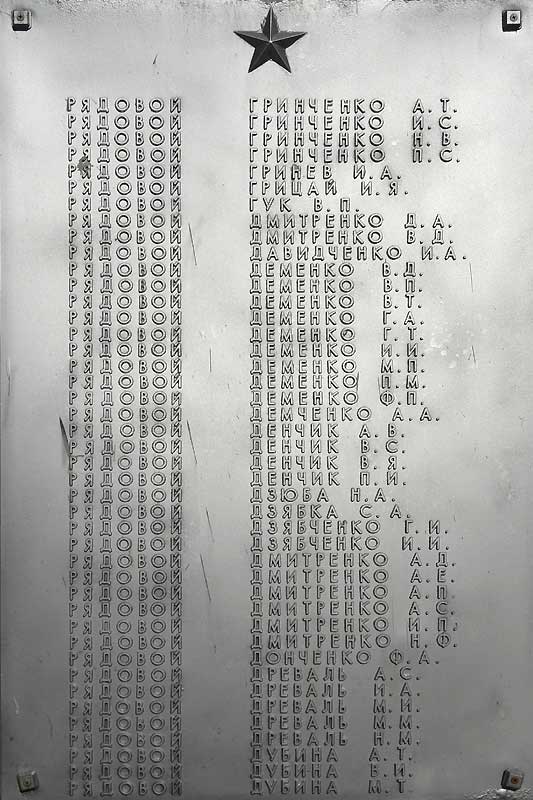 РЯДОВОЙ ГРИНЧЕНКО А.Т.
РЯДОВОЙ ГРИНЧЕНКО И.С.
РЯДОВОЙ ГРИНЧЕНКО Н.В.
РЯДОВОЙ ГРИНЧЕНКО П.С.
РЯДОВОЙ ГРИНЕВ И.А.
РЯДОВОЙ ГРИЦАЙ И.Я.
РЯДОВОЙ ГУК В.П.
РЯДОВОЙ ДМИТРЕНКО Д.А.
РЯДОВОЙ ДМИТРЕНКО В.Д.
РЯДОВОЙ ДАВИДЧЕНКО И.А.
РЯДОВОЙ ДЕМЕНКО В.Д.
РЯДОВОЙ ДЕМЕНКО В.П.
РЯДОВОЙ ДЕМЕНКО В.Т.
РЯДОВОЙ ДЕМЕНКО Г.А.
РЯДОВОЙ ДЕМЕНКО Г.Т.
РЯДОВОЙ ДЕМЕНКО И.И.
РЯДОВОЙ ДЕМЕНКО М.П.
РЯДОВОЙ ДЕМЕНКО П.М.
РЯДОВОЙ ДЕМЕНКО Ф.П.
РЯДОВОЙ ДЕМЧЕНКО А.А.
РЯДОВОЙ ДЕНЧИК А.В.
РЯДОВОЙ ДЕНЧИК В.С.
РЯДОВОЙ ДЕНЧИК В.Я.
РЯДОВОЙ ДЕНЧИК П.И.
РЯДОВОЙ ДЗЮБА Н.А.
РЯДОВОЙ ДЗЯБКА С.А.
РЯДОВОЙ ДЗЯБЧЕНКО Г.И.
РЯДОВОЙ ДЗЯБЧЕНКО И.И.
РЯДОВОЙ ДМИТРЕНКО А.Д.
РЯДОВОЙ ДМИТРЕНКО А.Е.
РЯДОВОЙ ДМИТРЕНКО А.П.
РЯДОВОЙ ДМИТРЕНКО А.С.
РЯДОВОЙ ДМИТРЕНКО И.П.
РЯДОВОЙ ДМИТРЕНКО Н.Ф.
РЯДОВОЙ ДОНЧЕНКО Ф.А.
РЯДОВОЙ ДРЕВАЛЬ А.С.
РЯДОВОЙ ДРЕВАЛЬ И.А.
РЯДОВОЙ ДРЕВАЛЬ М.И.
РЯДОВОЙ ДРЕВАЛЬ М.М.
РЯДОВОЙ ДРЕВАЛЬ Н.М.
РЯДОВОЙ ДУБИНА А.Т.
РЯДОВОЙ ДУБИНА В.И.
РЯДОВОЙ ДУБИНА М.Т.